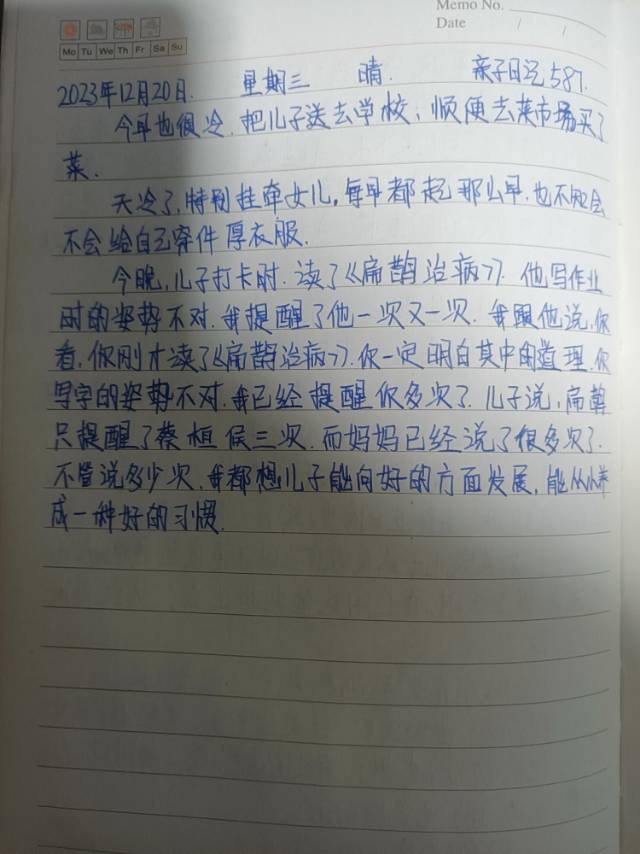 Memo No.
Date / /
Mo Tu We Th Fr Sa Su
2023年12月20日. 星期三 晴. 亲子日记587.
今早也很冷.把儿子送去学校、顺便去菜市场买了
菜.
天冷了,特别挂牵女儿,每早都起那么早.也不知会
不会给自己穿件厚衣服.
今晚,儿子打卡时.读了《扁鹊治病》.他写作业
时的姿势不对.我提醒了他一次又一次.我跟他说,你
看,你刚才读了《扁鹊治病》.你一定明白其中的道理.你
写字的姿势不对.我已经提醒你多次了.儿子说,扁鹊
只提醒了蔡桓侯三次.而妈妈已经说了很多次了.
不管说多少次.我都想儿子能向好的方面发展,能从小养
成一种好的习惯.